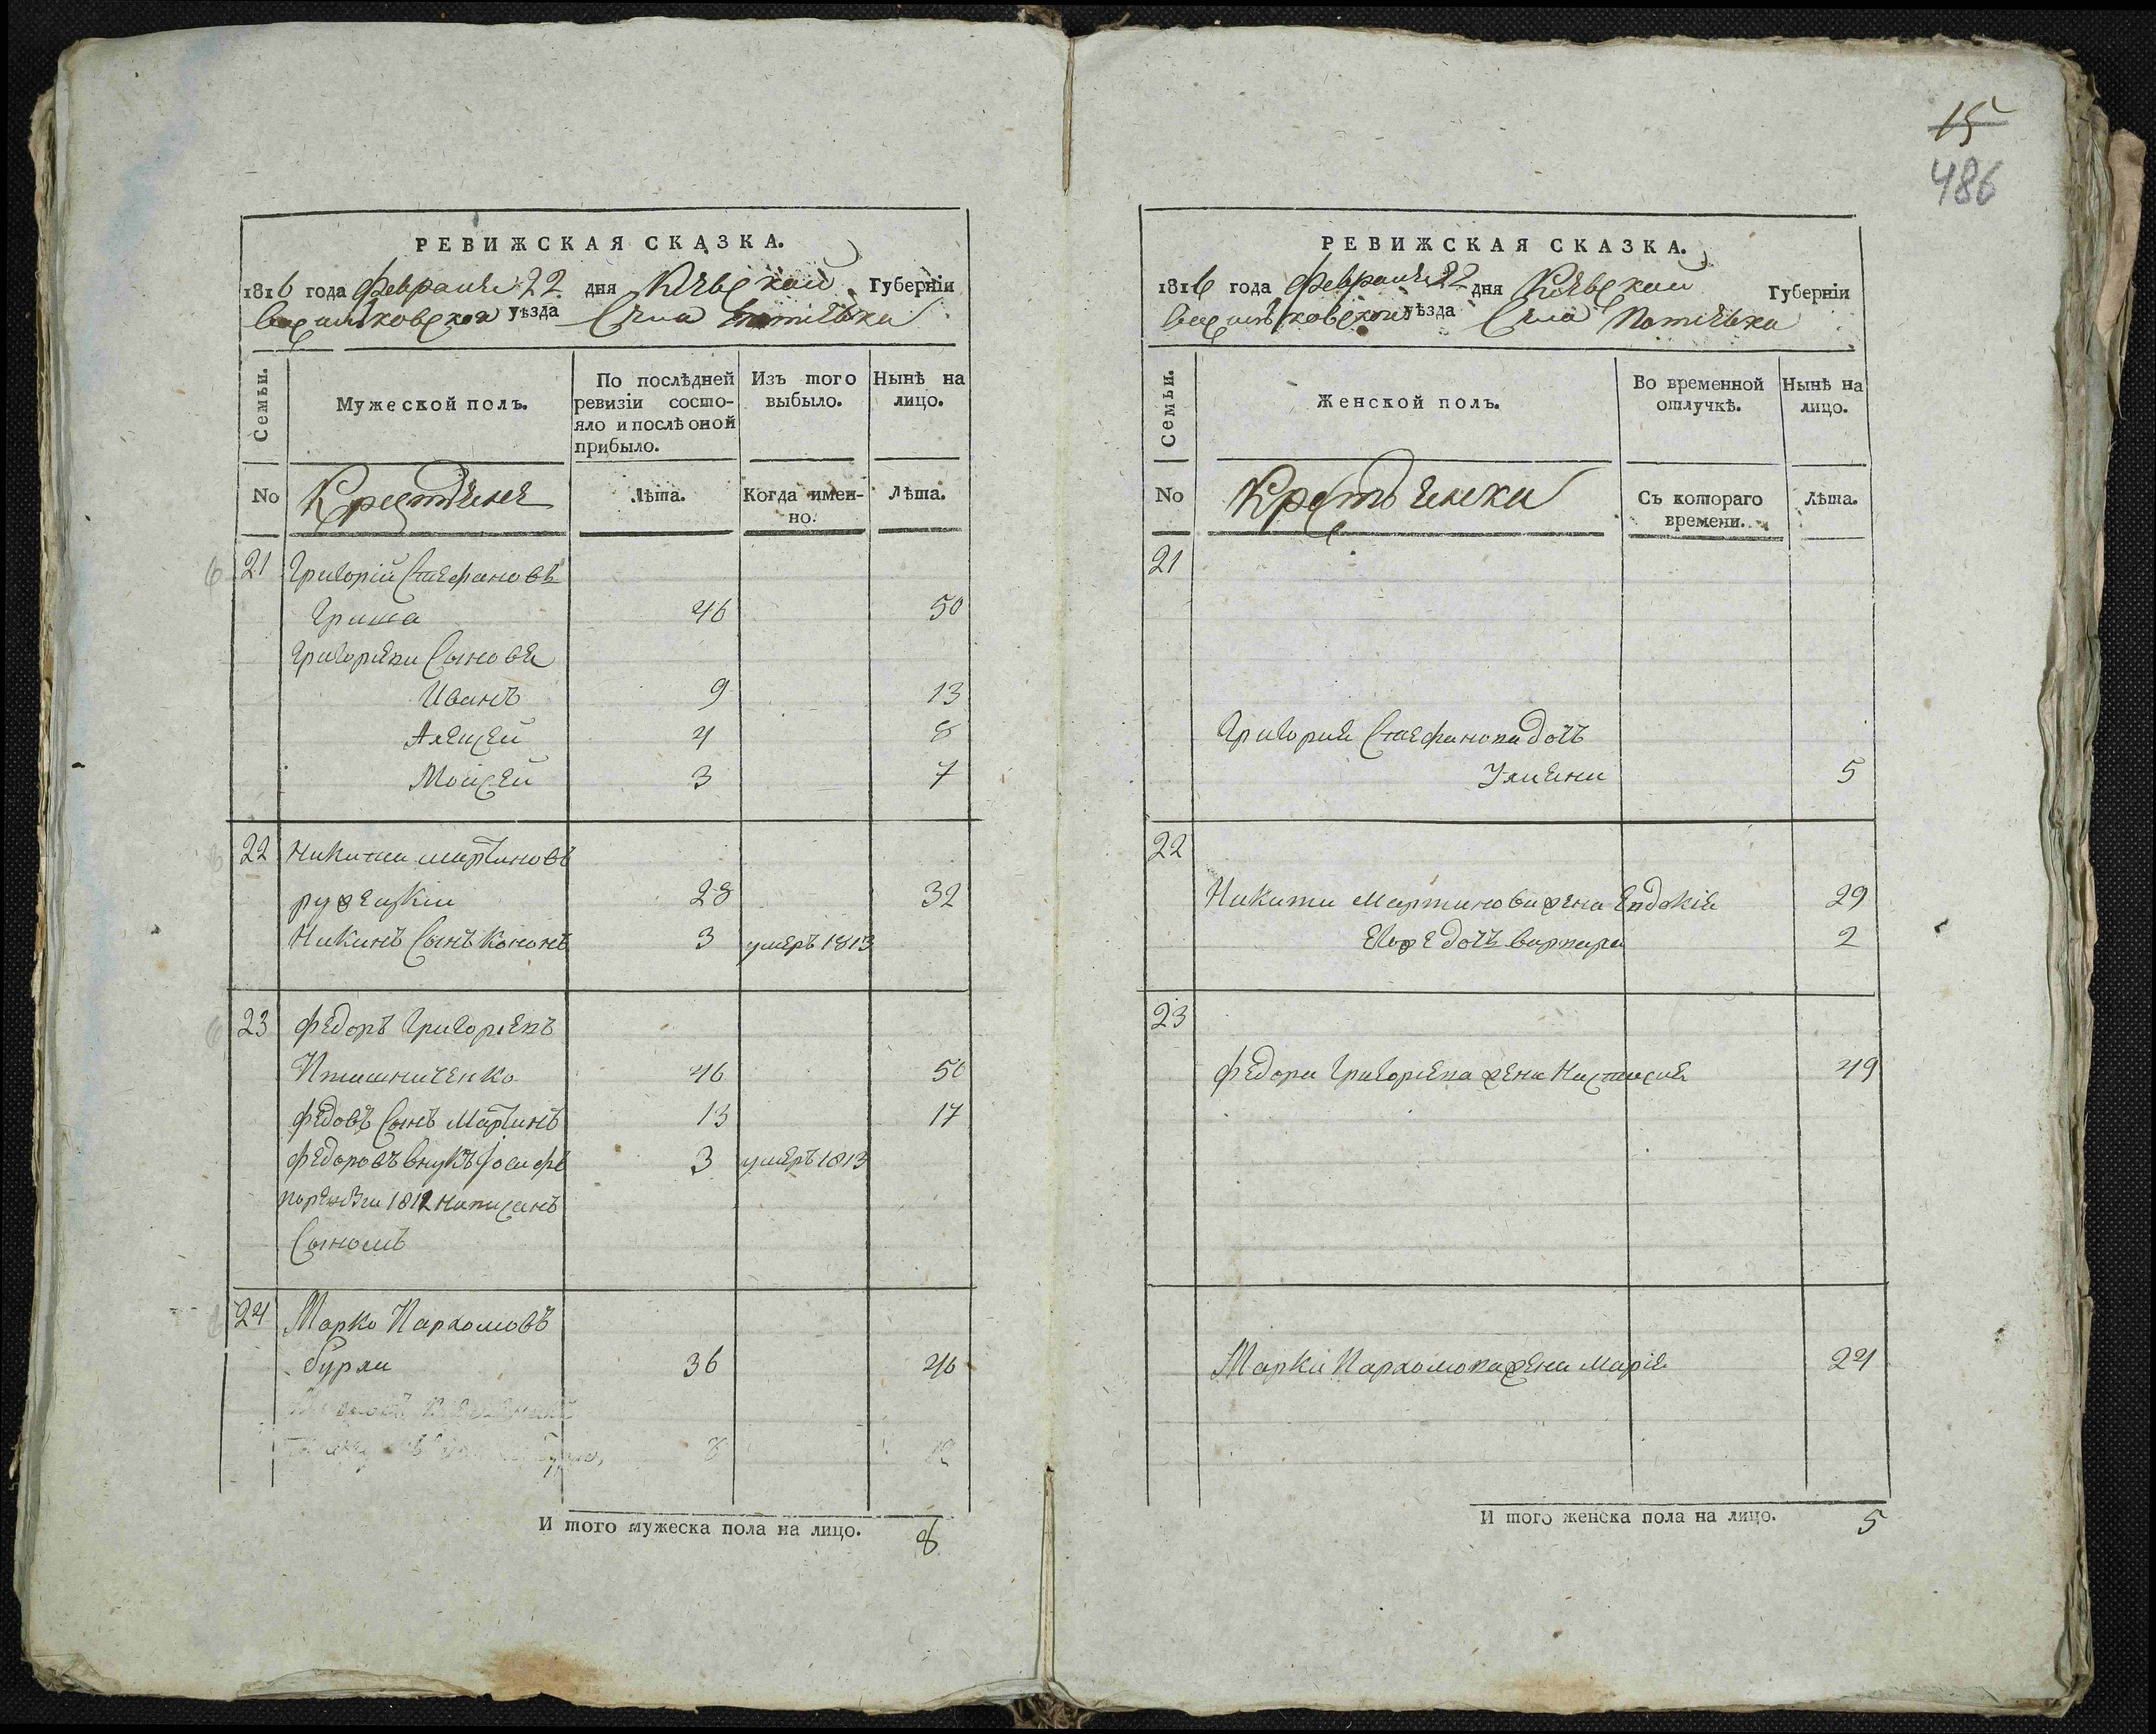 РЕВИЖСКАЯ СКАЗКА.
1816 года Февраля 22 дня Кіевской Губерніи
Васильковской уѣзда Села
Семьи.
Мужеской полъ.
По послѣдней ревизіи состояло и послѣ оной прибыло.
Изъ того выбыло.
Нынѣ на лицо.
No
Крестьяне
Лѣта.
Когда именно.
Лѣта.
21 Григорій Стефановъ
Гриша 46 50
Григорієви Сынове
Иванъ 9 13
Алексей 4 8
Мойсей 3 7
22 Никита Мартиновъ
28 32
Никинъ Сынъ Кононъ 3 умеръ 1813
23 Федоръ Григорієвъ
Пташниченко 46 50
Федовъ Сынъ Мартинъ 13 17
Федоровъ внукъ Іосифъ 3 умеръ 1813
1812 написанъ
Сыномъ
24 Марко Пархомовъ
Бурла 36 40
8 12
И того мужеска пола на лицо. 8
15
486
РЕВИЖСКАЯ СКАЗКА.
1816 года Февраля 22 дня Кіевской Губерніи
Васильковской уѣзда Села Потіевка
Семьи.
Женской полъ.
Во временной отлучкѣ.
Нынѣ на лицо.
No
Крестьянки
Съ котораго времени.
Лѣта.
21
Григория Стефанова дочь
Улияни 5
22
Никити Мартинова жена Евдокія 29
Его же дочь Варвара 2
23
Федора Григорієва жена Настасия 49
Марка Пархомова жена Марія 24
И того женска пола на лицо. 5